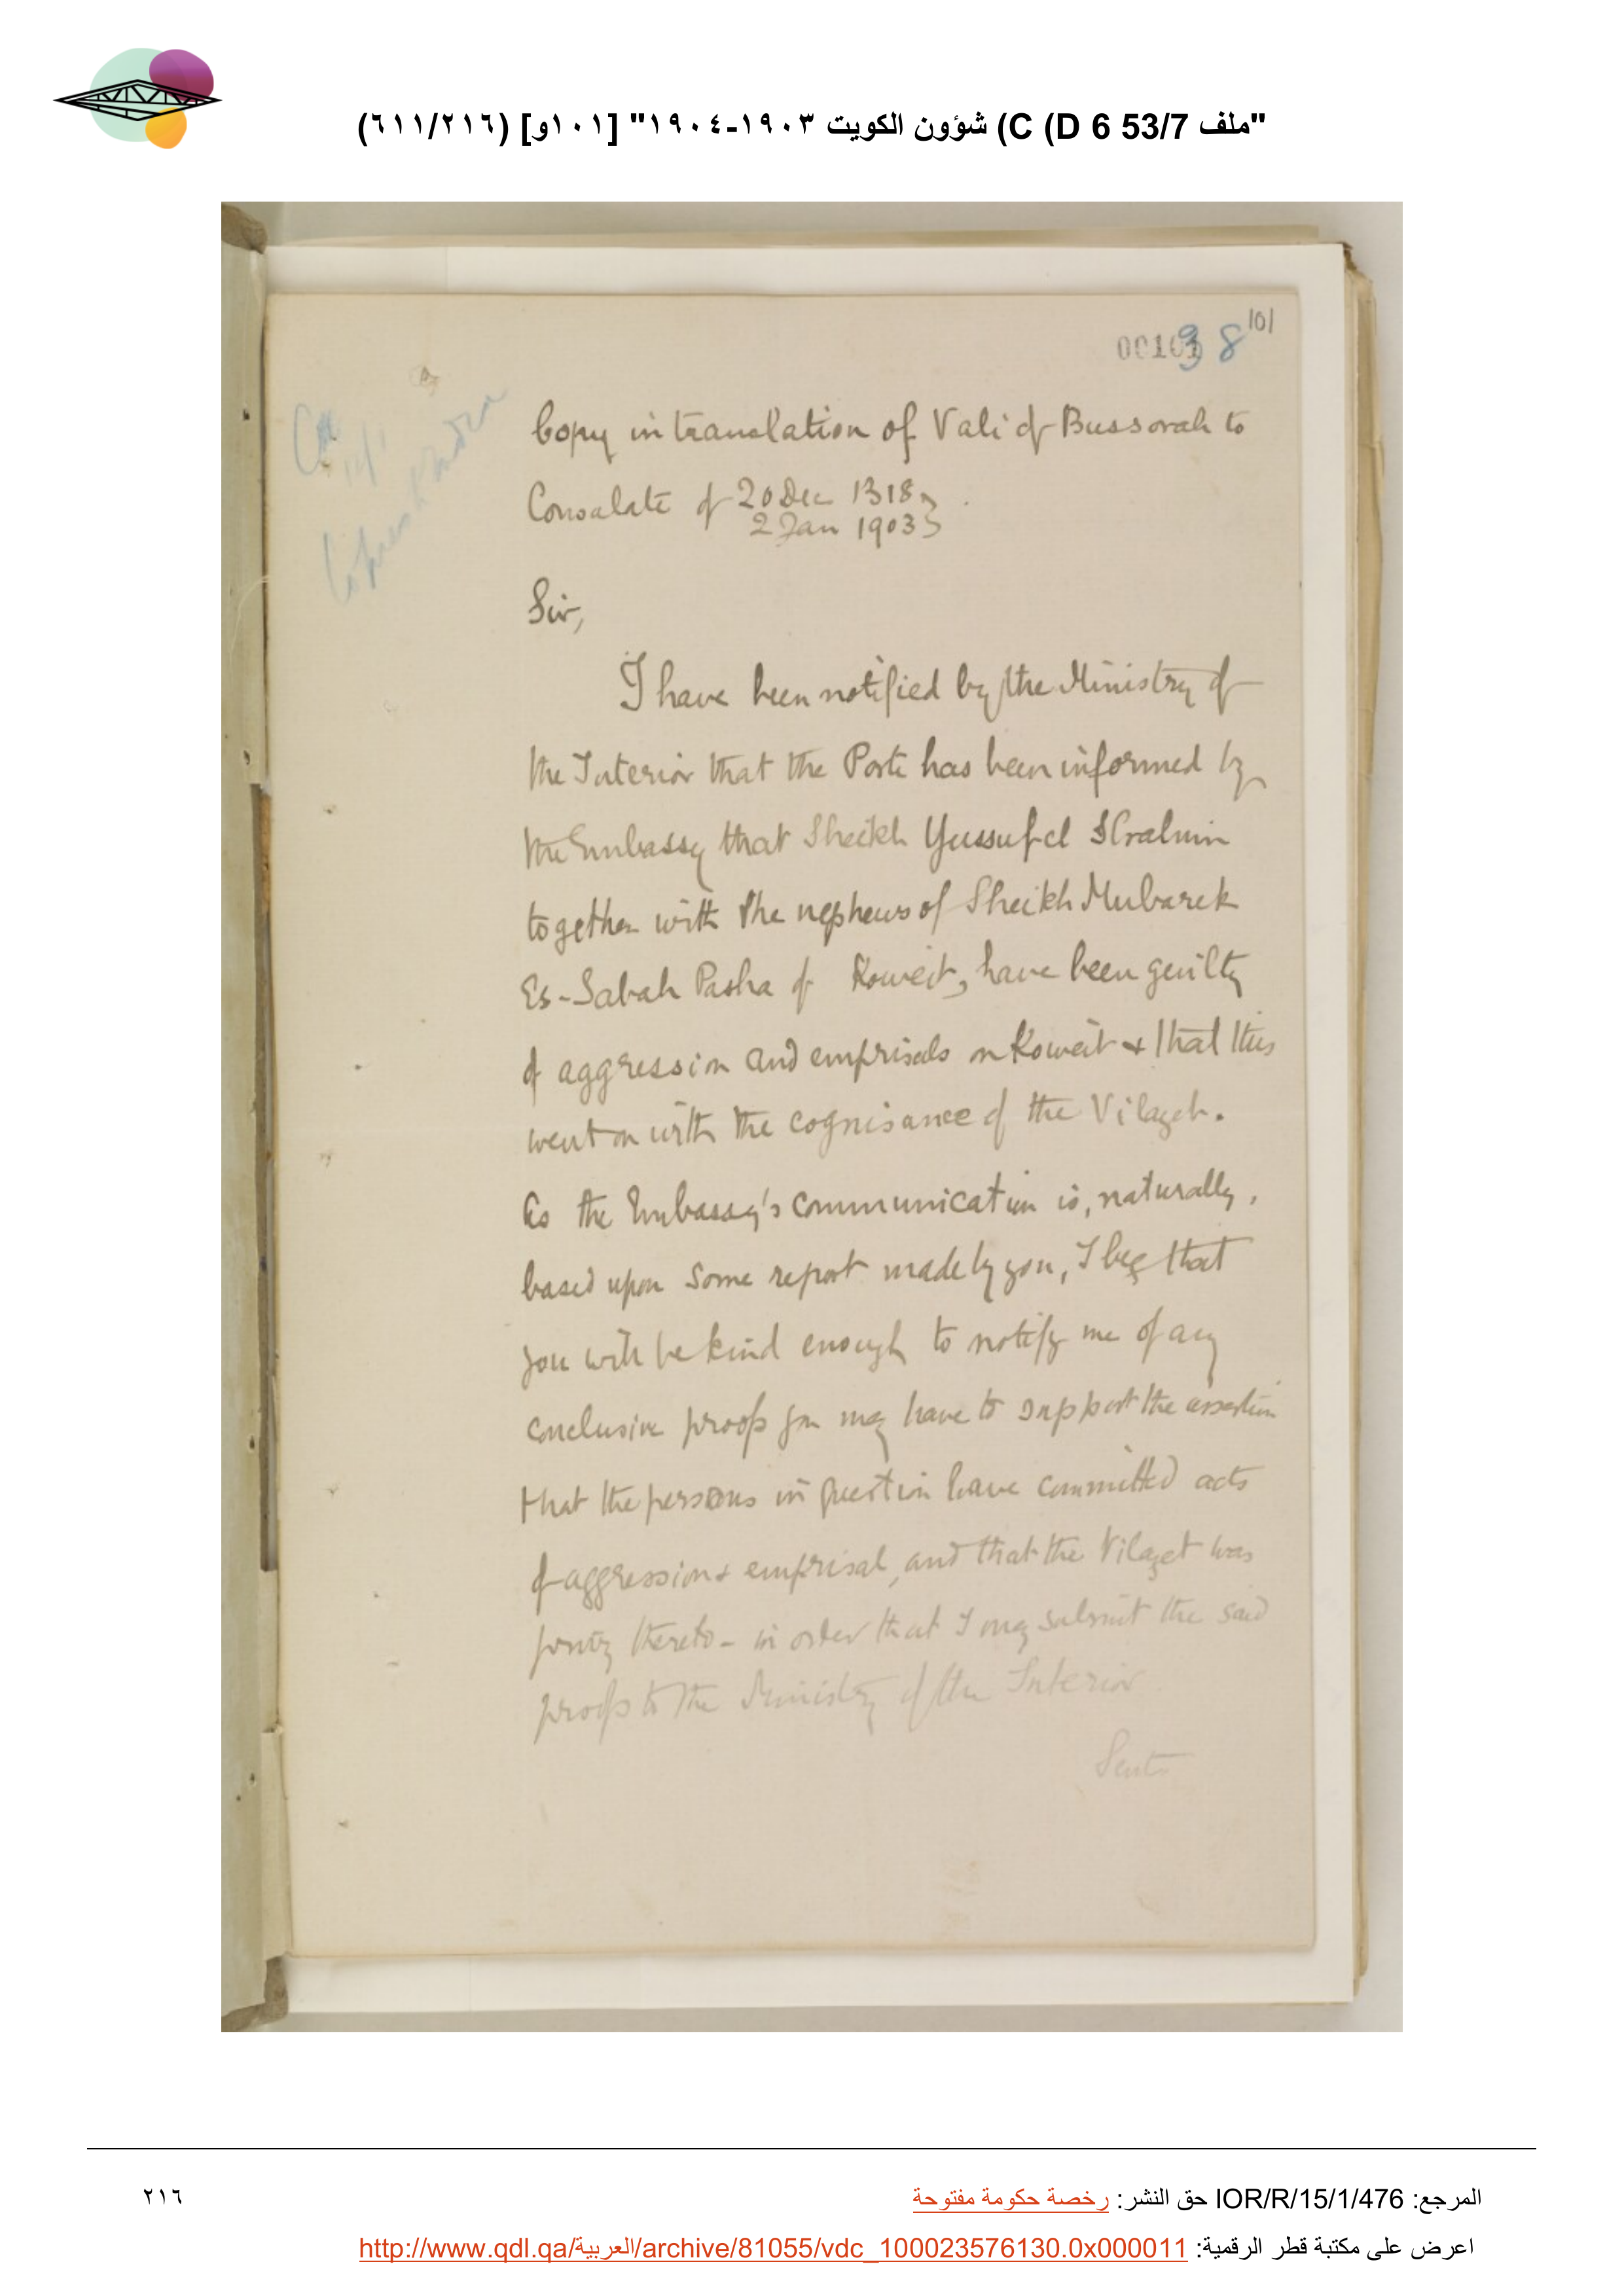 "ملف 53/7 C (D 6) شؤون الكويت ١٩٠٣-١٩٠٤" [١٠١و] (٦١١/٢١٦)
101
00101 38
Copy in translation of Vali of Bussorah to
Consulate of 20 Dec 1318
2 Jan 1903
Sir,
I have been notified by the Ministry of
the Interior that the Porte has been informed by
the Embassy that Sheikh Yussuf el Ibrahim
together with the nephews of Sheikh Mubarek
Es-Sabah Pasha of Koweit, have been guilty
of aggression and emprisals on Koweit & that this
went on with the cognisance of the Vilayet.
As the Embassy's communication is, naturally,
based upon some report made by you, I beg that
you will be kind enough to notify me of any
conclusive proofs you may have to support the assertion
that the persons in question have committed acts
of aggression & emprisal, and that the Vilayet was
privy thereto - in order that I may submit the said
proofs to the Ministry of the Interior
المرجع: IOR/R/15/1/476 حق النشر: رخصة حكومة مفتوحة
٢١٦
اعرض على مكتبة قطر الرقمية: http://www.qdl.qa/العربية/archive/81055/vdc_100023576130.0x000011